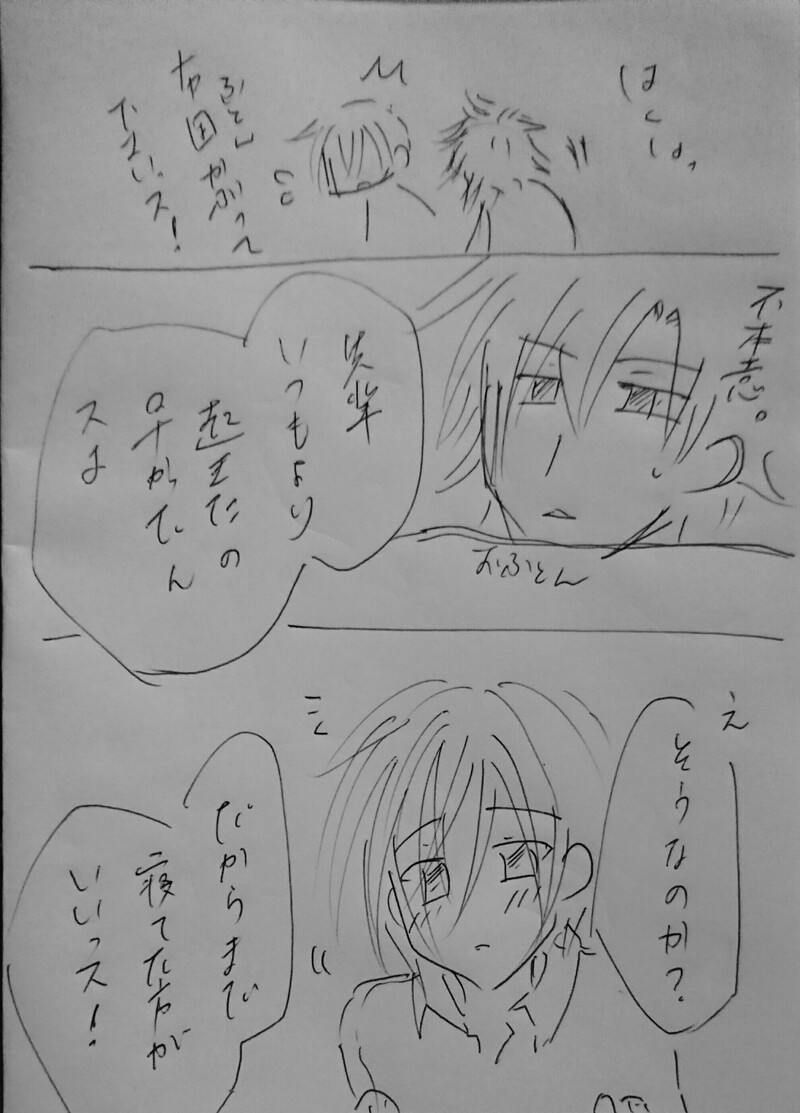 はしはっ
布団かぶって
下さいっス!
不本意。
先輩
いつもより
起きたの
早かったん
スよ
おふとん
え
そうなのか?
だからまだ
寝てた方が
いいっス!